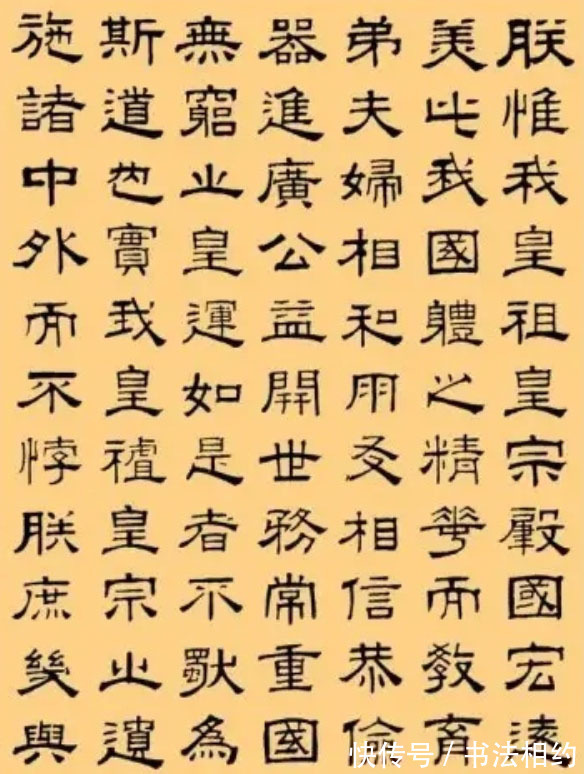 朕惟我皇祖皇宗肇國宏遠
美此我國體之精華而教育
弟夫婦相和朋友相信恭儉
器進廣公益開世務常重國
無窮之皇運如是者不獨為
斯道也實我皇祖皇宗之遺
施諸中外而不悖朕庶幾與
快传号 / 书法相约